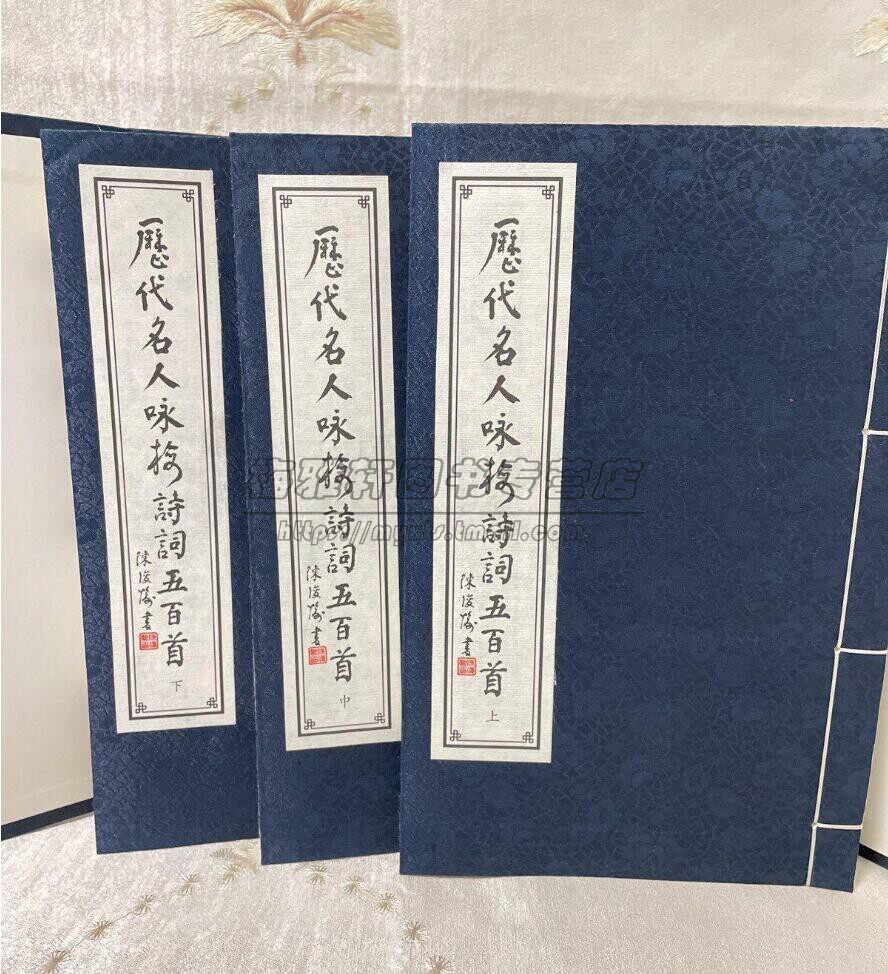 歷代名人咏梅詩詞五百首 上
陳俊愉書
歷代名人咏梅詩詞五百首 中
陳俊愉書
歷代名人咏梅詩詞五百首 下
陳俊愉書
梅雅轩图书专营店
https://myxts.tmall.com